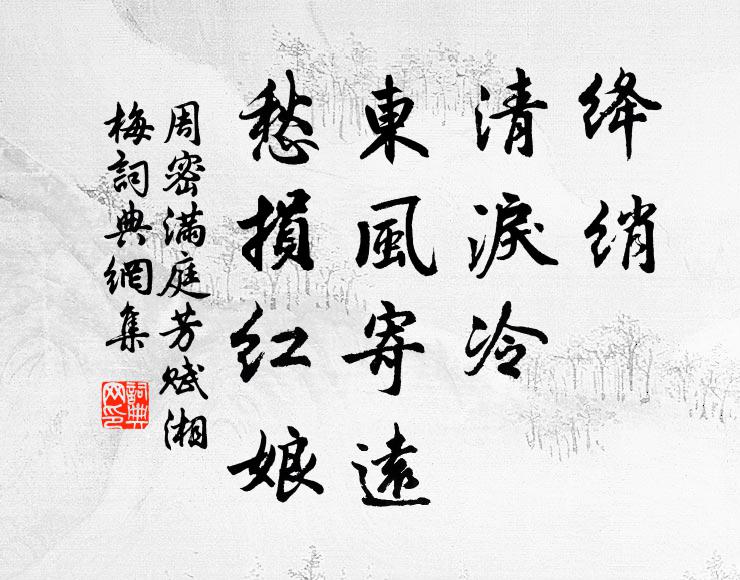 绛绡
清淚冷
東風寄遠
愁損红娘
周密满庭芳赋湘
梅詞典網集
詞典網印